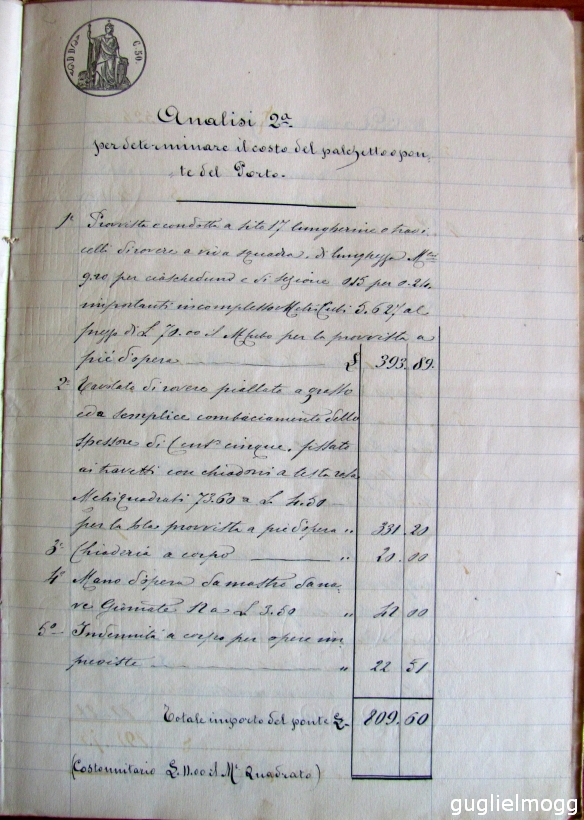 C. 50
Analisi 2ª
per determinare il costo del palchetto o pon-
te del Porto.
1º Provvista e condotta a sito 17 lungherine o travi
celli di rovere a viva squadra di lunghezza Mtri
9.20 per ciascheduno e di sezione 0.15 per 0.24
importanti in complesso Metri Cubi 5.627 al
prezzo di L 70.00 il M cubo per la provvista a
piè d'opera £ 393.89.
2º Tavolate di rovere piallate a grosso
ed a semplice combaciamento dello
spessore di Cent cinque, fissate
ai travetti con chiodoni a testa rasa
Metri quadrati 73.60 a L 4.50
per la sola provvista a piè d'opera " 331.20
3º Chioderia a corpo " 20.00
4º Mano d'opera da mastro d'ana-
ve Giornate 12 a L 3.50 " 42 00
5º Indennità a corpo per opere im
previste " 22 51
Totale importo del ponte £. 809.60
(Costo unitario £. 11.00 il Mº Quadrato)
guglielmogg